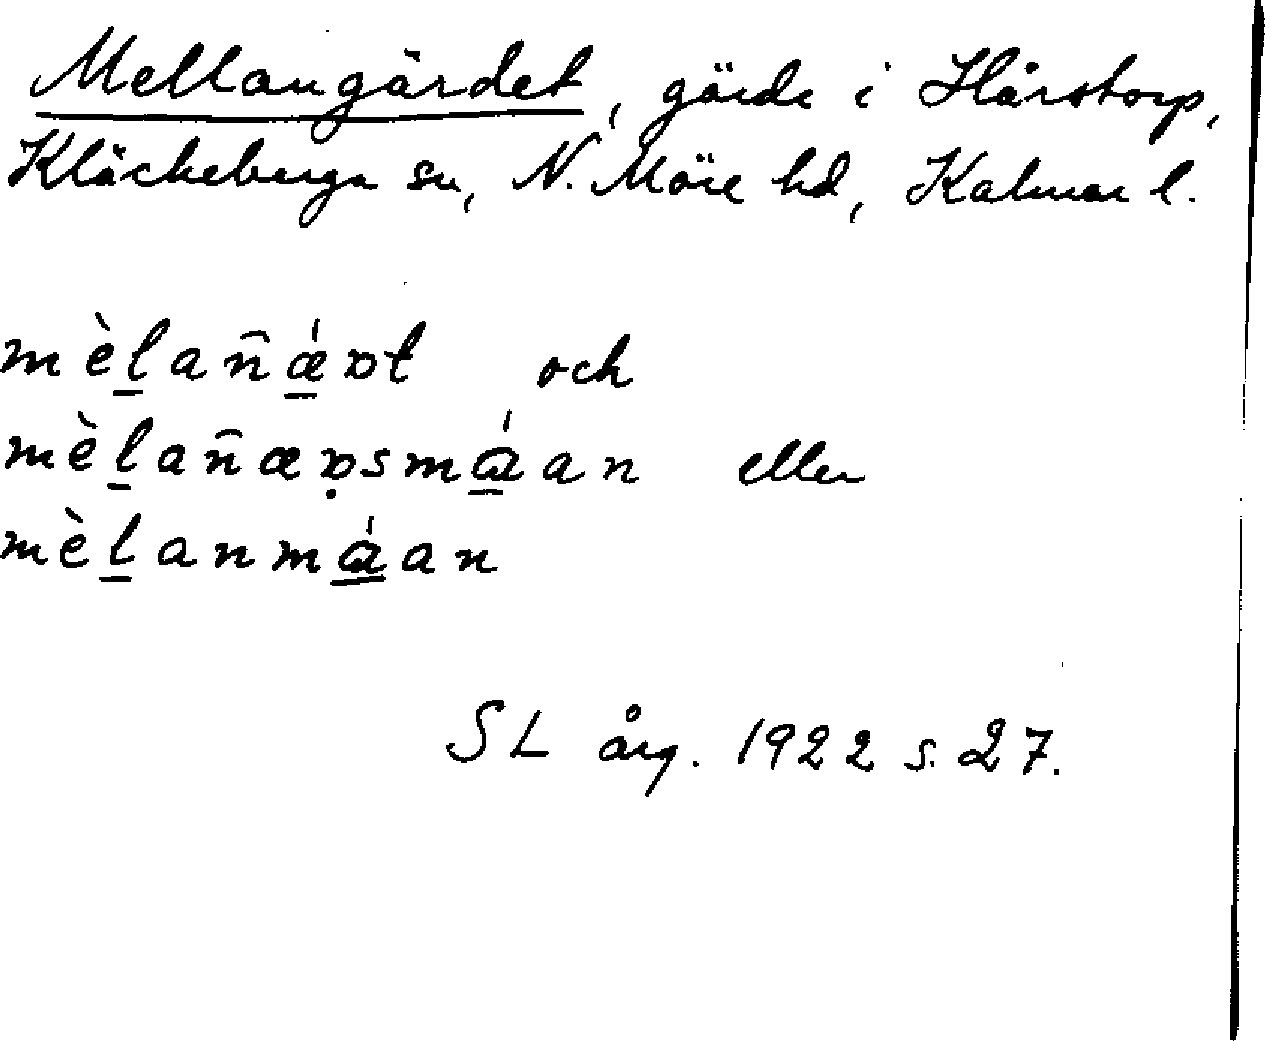 Mellangärdet, gärde i Hårstorp,
Kläckeberga sn, N. Möre hd, Kalmar l.
mèl̲an̂ǽ̲ʋt och
mèl̲an̂æʋ̣smɑ̲́an eller
mèl̲anmɑ̲́an
SL årg. 1922 s. 27.